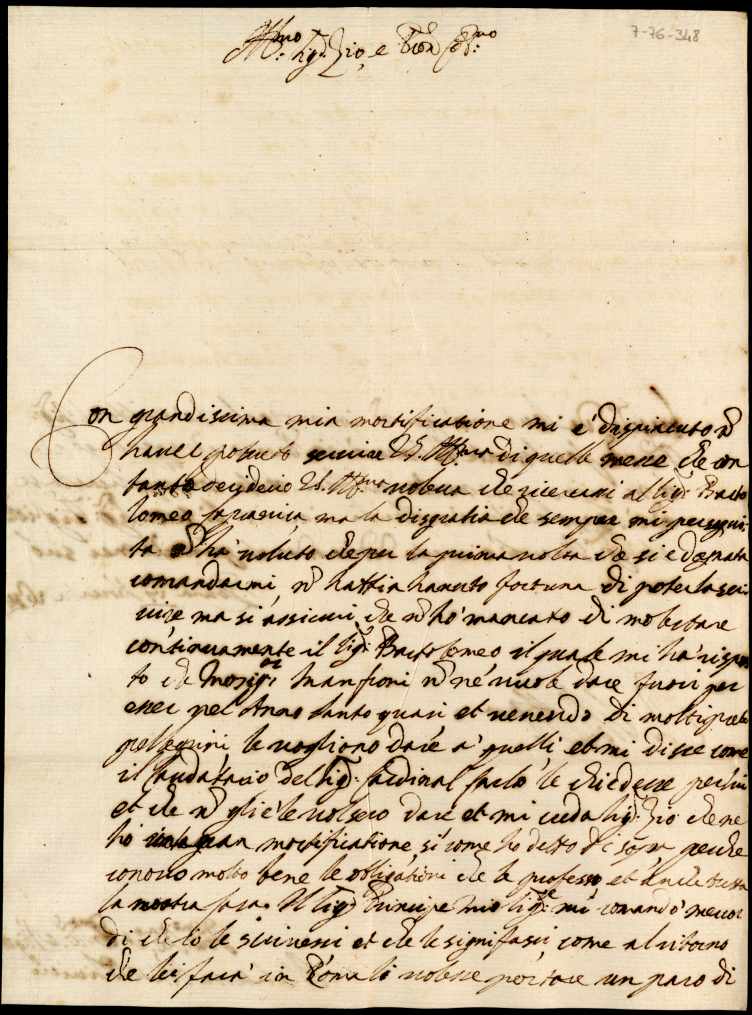 7-76-348
Ill.mo Sig.r Zio, e Pron Col.mo
Con grandissima mia mortificatione mi è dispiaciuto nõ
haver potuto servire V.S. Ill.ma di quelle messe che con
tanto desiderio V.S. Ill.ma voleva che ricercassi al Sig.r Barto
lomeo ma la disgratia che sempre mi persegui
ta nõ ha voluto che per la prima volta che si è degnata
comandarmi, nõ habbia havuto fortuna di poterla ser
vire ma si assicuri che nõ ho mancato di molestare
continuamente il Sig.r Bartolomeo il quale mi ha rispos
to che Monsig.r Manfroni nõ ne vuole dare fuori per
esser per Anno Santo quasi et venendo di molti preti
pellegrini le vogliono dare a quelli, et mi disse come
il caudatario del Sig.r Cardinal le chiedesse per lui
et che nõ glie le volsero dare et mi creda Sig.r Zio che ne
ho gran mortificatione sì come ho detto di sopra perche
conosco molto bene le obligationi che le professo, et anche tutta
la nostra Casa. Il Sig.r Principe mio Sig.re mi comandò mercor
dì che io le scrivessi et che le significassi come al ritorno
che lei farà in Roma li volesse portare un paro di